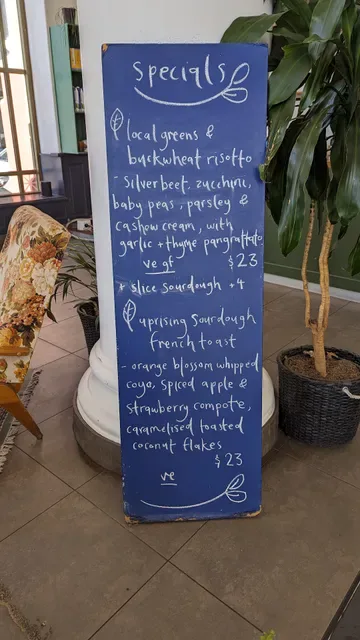 specials
local greens &
buckwheat risotto
- silverbeet, zucchini,
baby peas, parsley &
cashew cream, with
garlic + thyme pangrattato
ve gf $23
+ slice sourdough +4
uprising sourdough
french toast
- orange blossom whipped
coyo, spiced apple &
strawberry compote,
caramelised toasted
coconut flakes
$23
ve